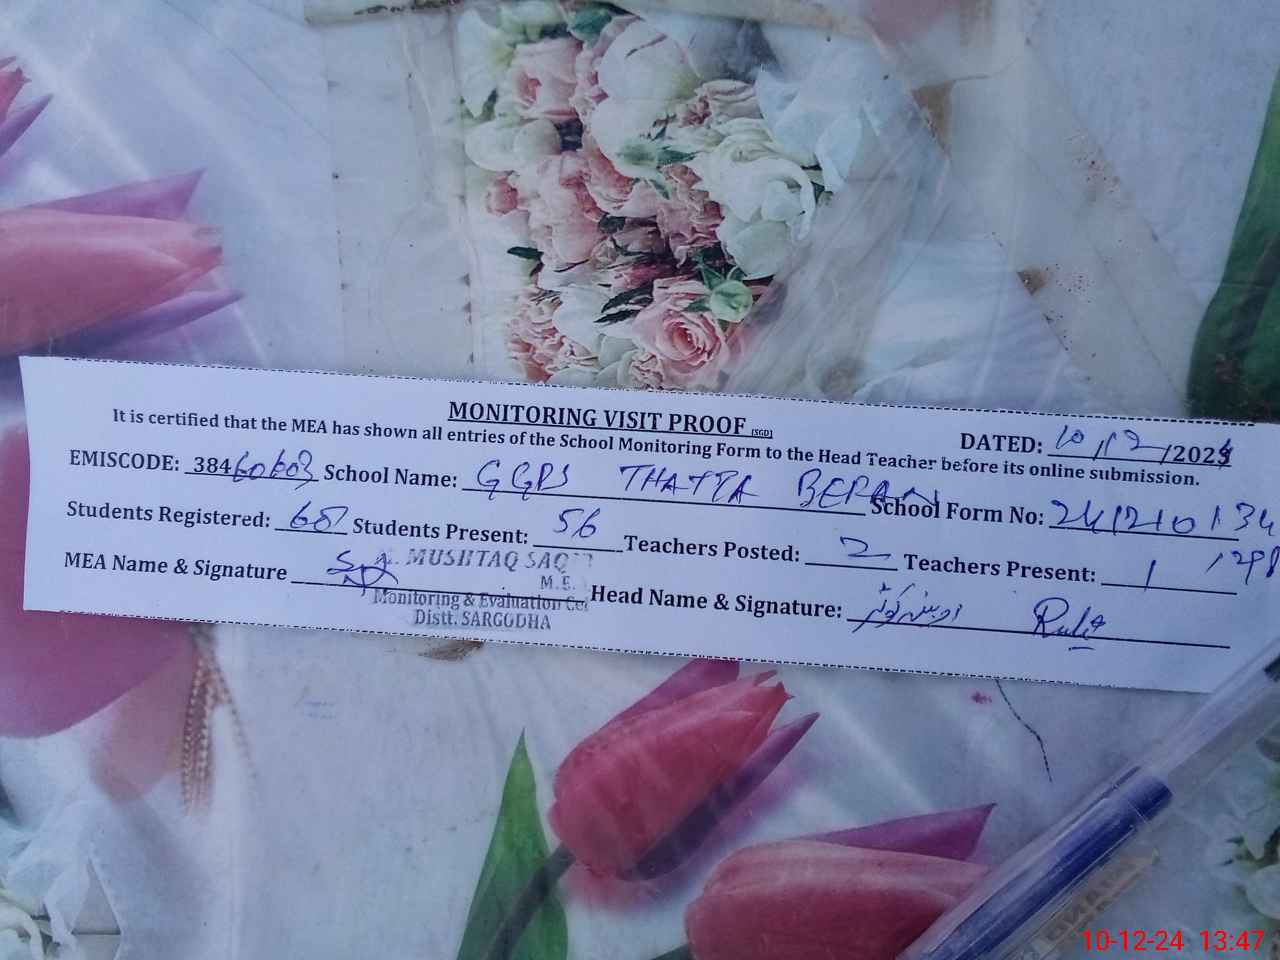 MONITORING VISIT PROOF (SGD)
DATED: 10/12/2024
It is certified that the MEA has shown all entries of the School Monitoring Form to the Head Teacher before its online submission.
EMISCODE: 38460603 School Name: GGPS THATTA BERAN School Form No: 241210134
1298
Students Registered: Students Present: 56 Teachers Posted: 2 Teachers Present: 1
MEA Name & Signature MUSHTAQ Head Name & Signature:
M.E.
Monitoring & Evaluation
Distt. SARGODHA
10-12-24 13:47